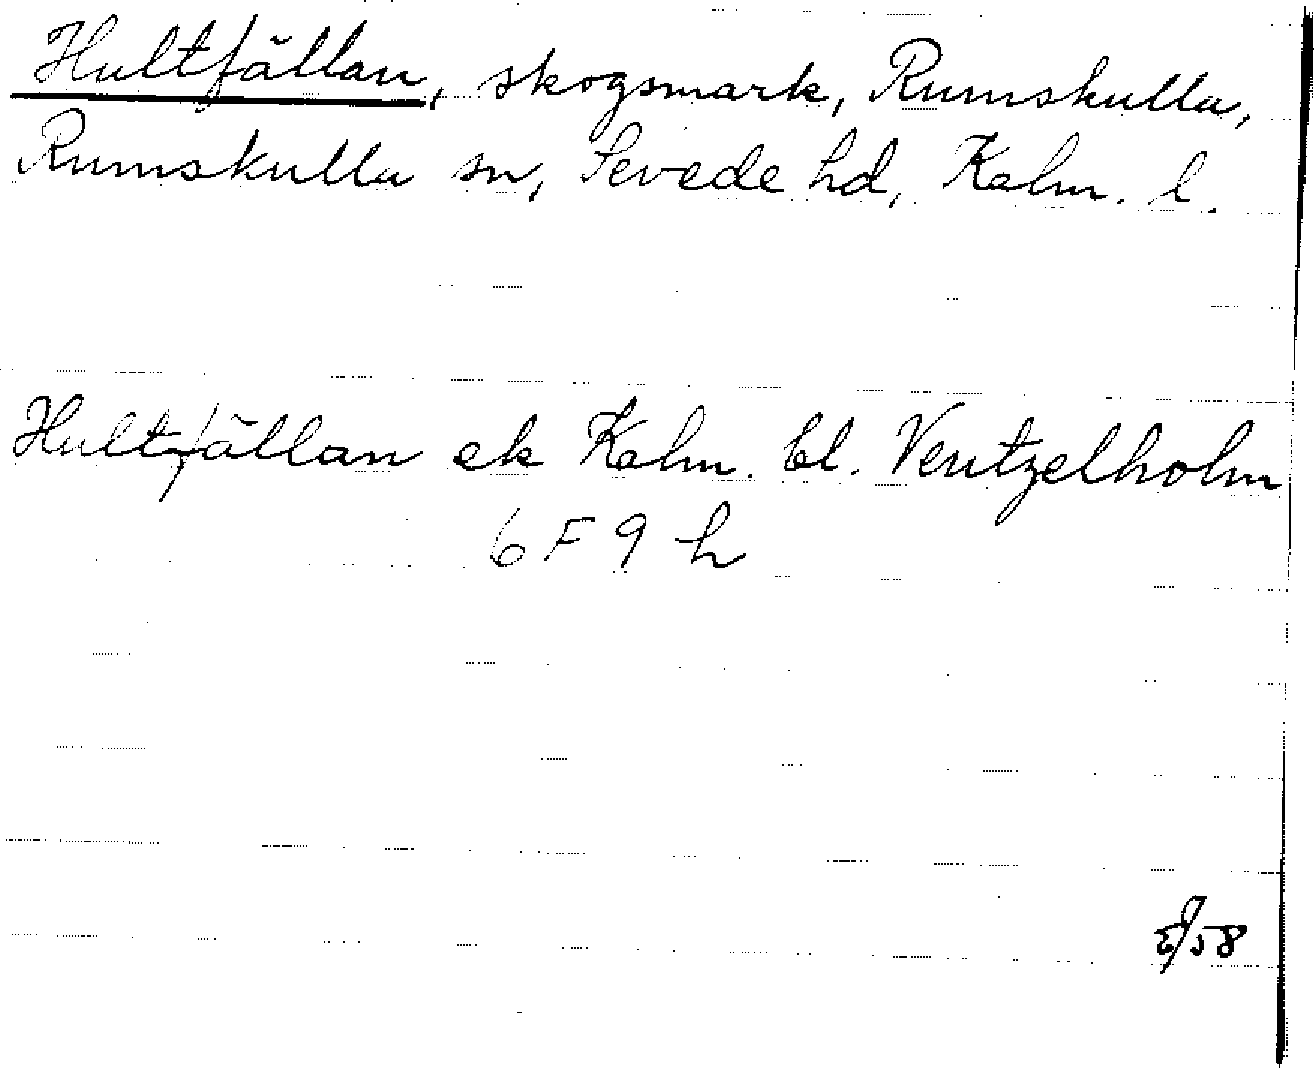 Hultfällan, skogsmark, Rumskulla,
Rumskulla sn, Sevede hd, Kalm. l.
Hultfällan ek Kalm. bl. Ventzelholm
6 F 9 h
58